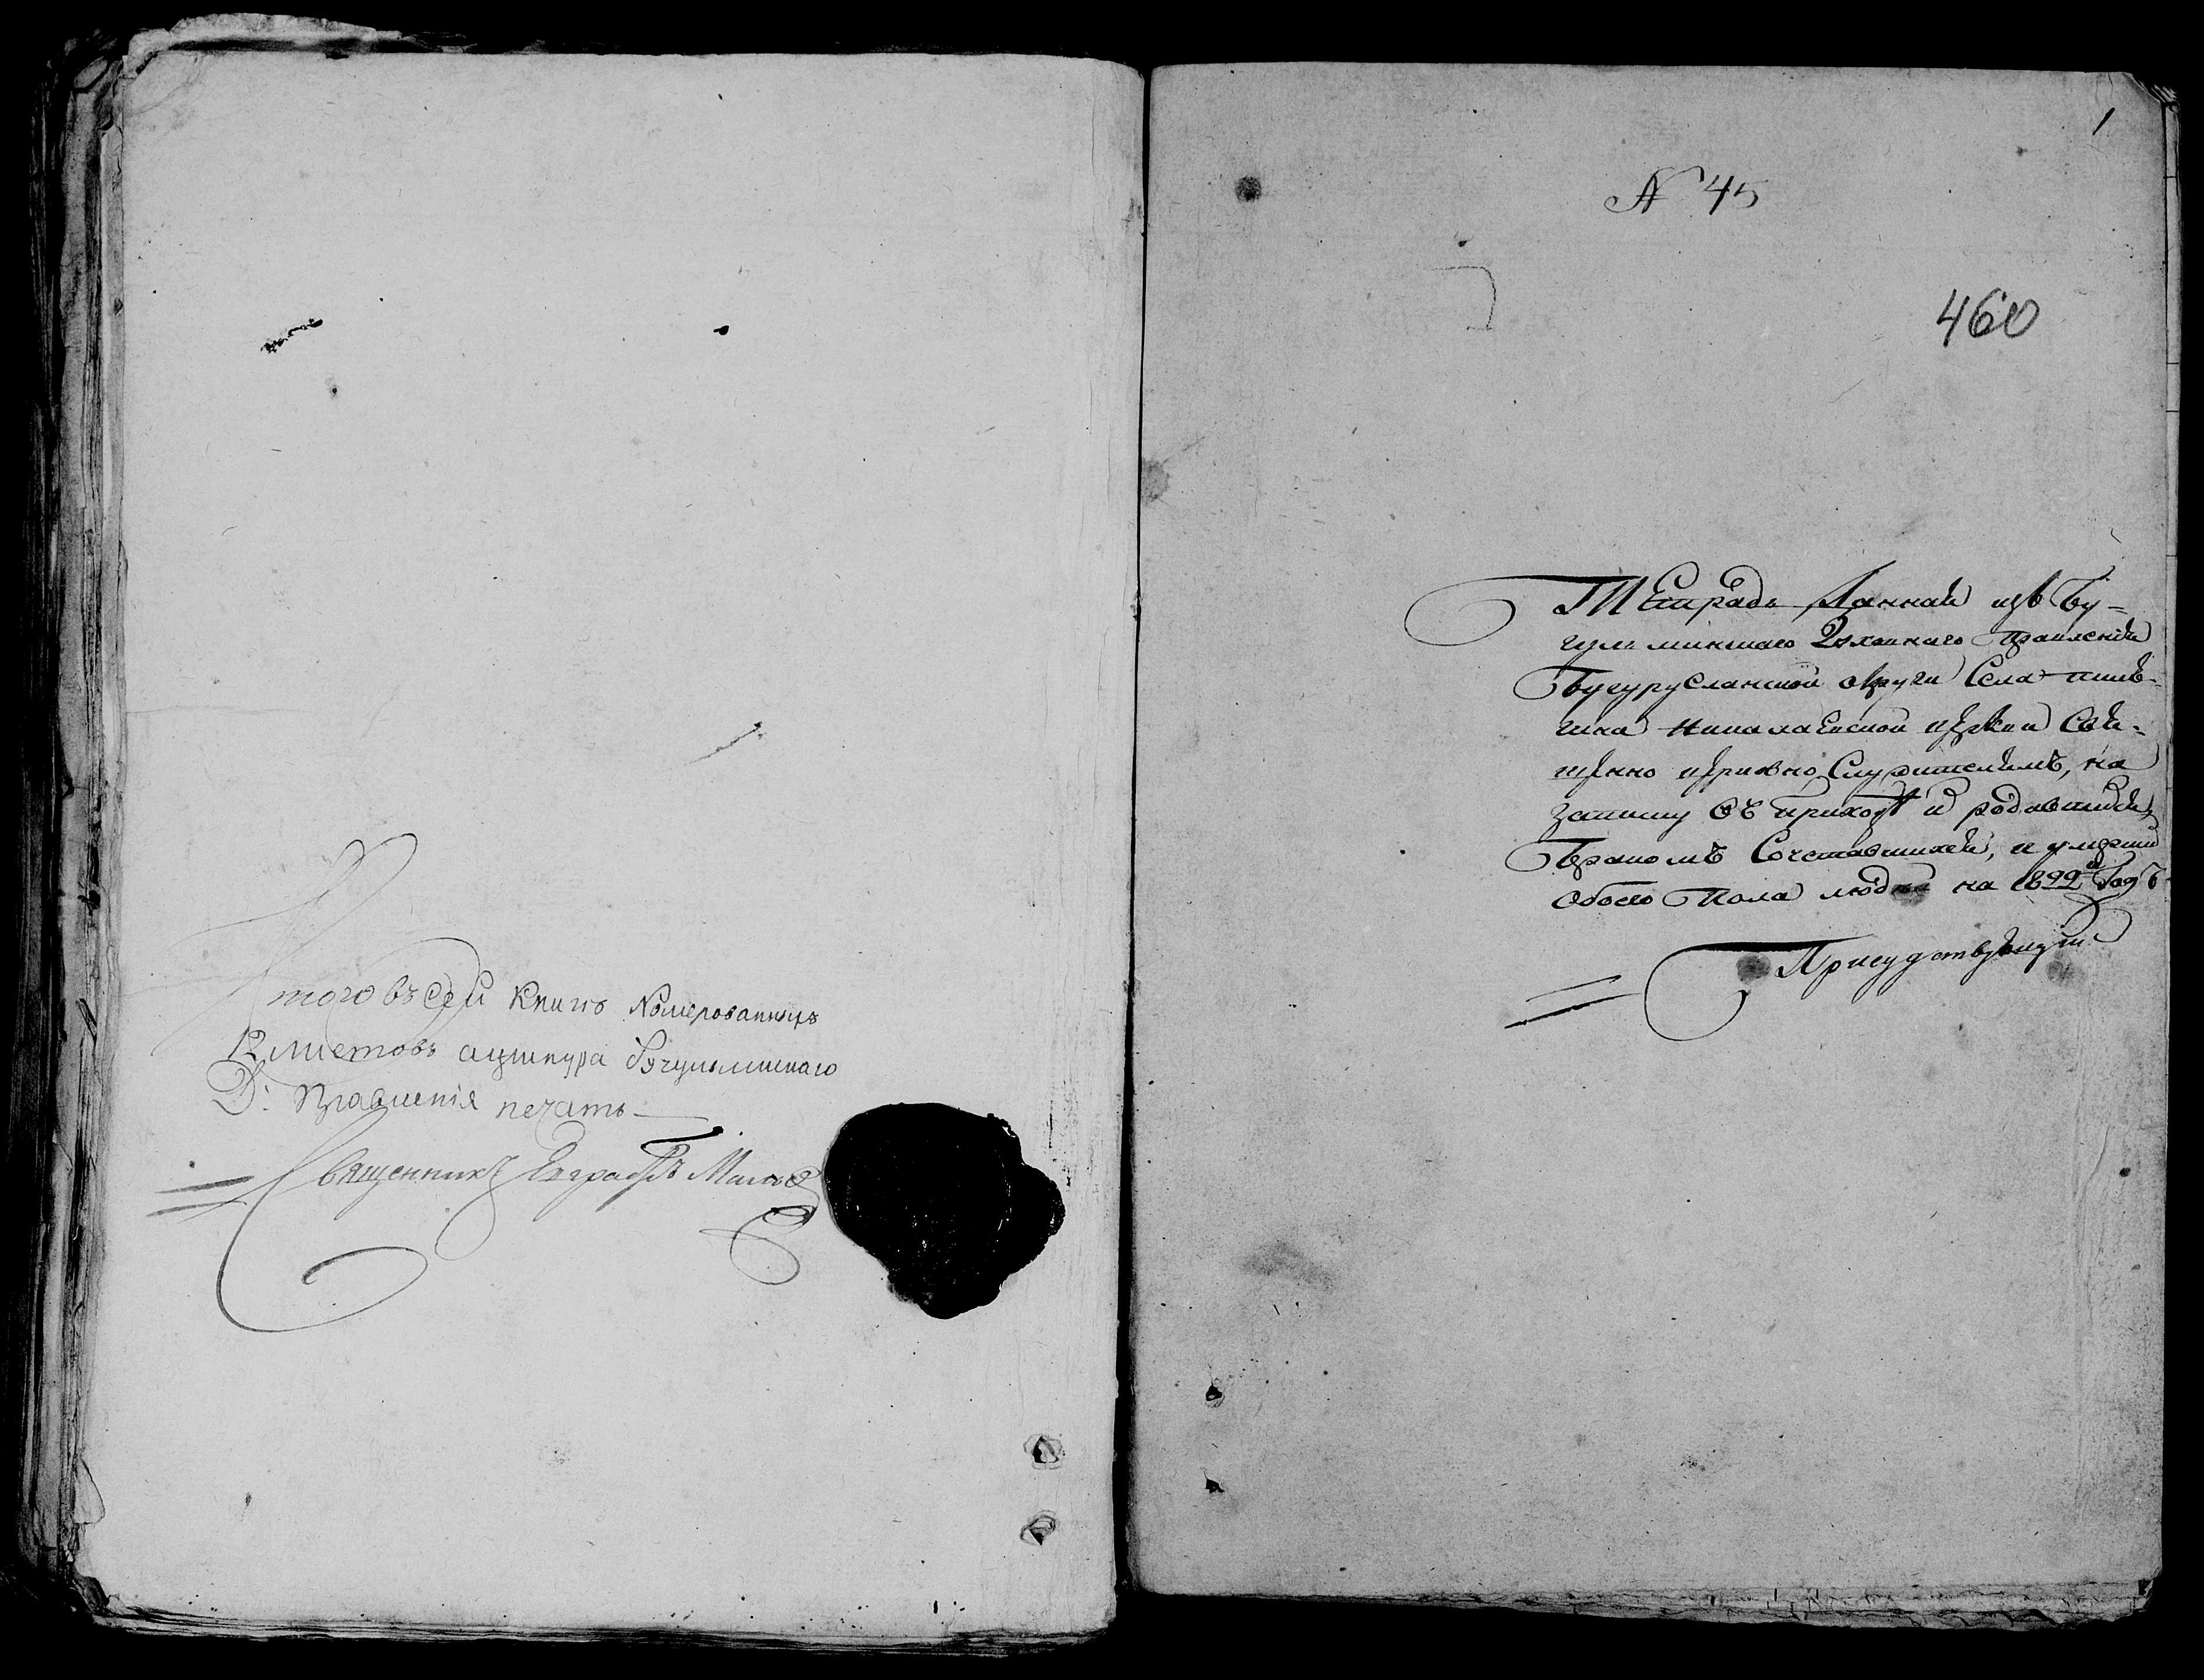 Итого въ сей книгѣ номерованныхъ
12 листовъ ашнура Бугульминскаго
Д: Правленія печать
Священникъ Евграфъ
1
N 45
460
Тетрадь Данная изъ Бу-
гульминскаго Духовнаго правленія
Бугурусланской округи Села
Николаевской церкви Свя-
щенно церковно Служителямъ, на
записку въ приходѣ родившихся,
Бракомъ Сочетавшихся, и умерши
Обоего Пола людей на 1822й Годъ
Присудствующи